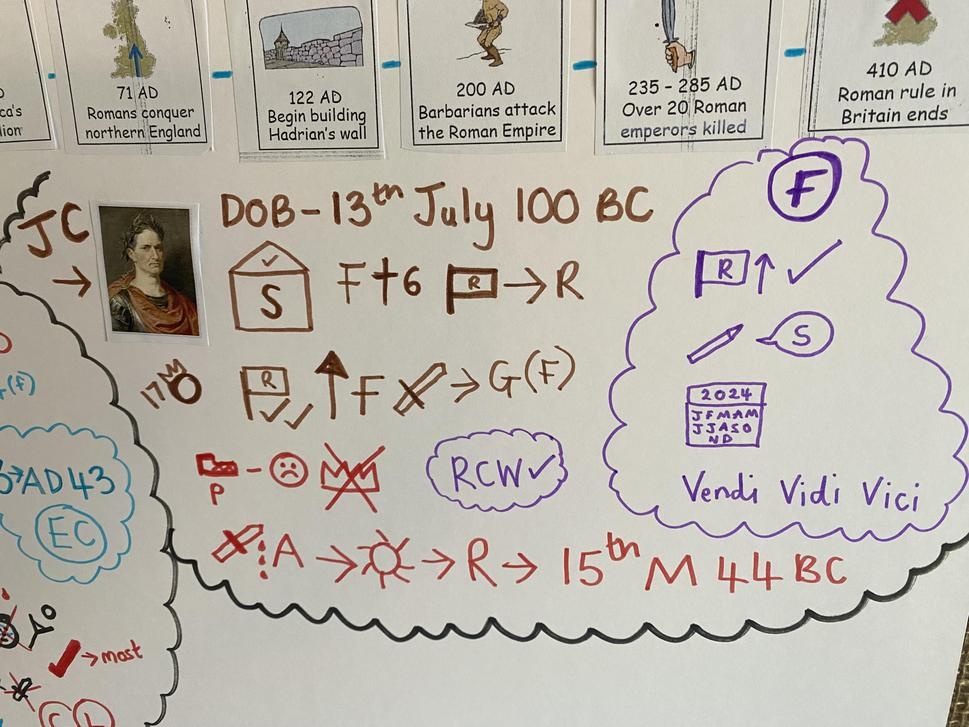 71 AD
Romans conquer
northern England
122 AD
Begin building
Hadrian's wall
200 AD
Barbarians attack
the Roman Empire
235 - 285 AD
Over 20 Roman
emperors killed
410 AD
Roman rule in
Britain ends
JC
DOB - 13th July 100 BC
S F†6 R → R
17 R F → G(F)
P - RCW ✓
A → → R → 15th M 44 BC
F
R ↑ ✓
S
2024
JFMAM
JJASO
ND
Vendi Vidi Vici
(f)
→AD43
EC
→most
C L